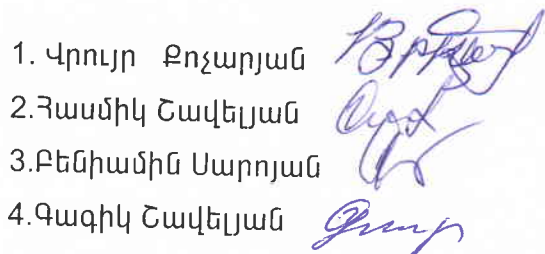 1. Վրույր Քոչարյան
2.Հասմիկ Շավելյան
3.Բենիամին Սարոյան
4.Գագիկ Շավելյան